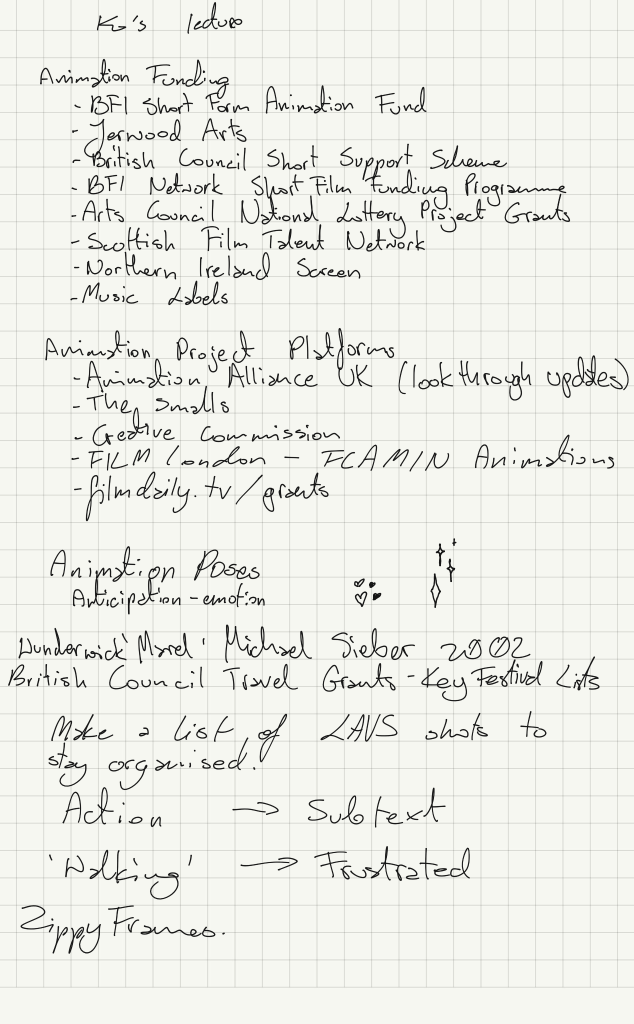 Ko's lecture
Animation Funding
- BFI Short Form Animation Fund
- Jerwood Arts
- British Council Short Support Scheme
- BFI Network Short Film Funding Programme
- Arts Council National Lottery Project Grants
- Scottish Film Talent Network
- Northern Ireland Screen
- Music Labels
Animation Project Platforms
- Animation Alliance UK (look through updates)
- The Smalls
- Creative Commission
- FILM London - FLAMIN Animations
- filmdaily.tv/grants
Animation Poses
Anticipation - emotion
Wunderwick 'Marel' Michael Sieber 2002
British Council Travel Grants - Key Festival Lists
Make a list of LAVS shots to
stay organised!
Action → Subtext
'Walking' → Frustrated
Zippy Frames.